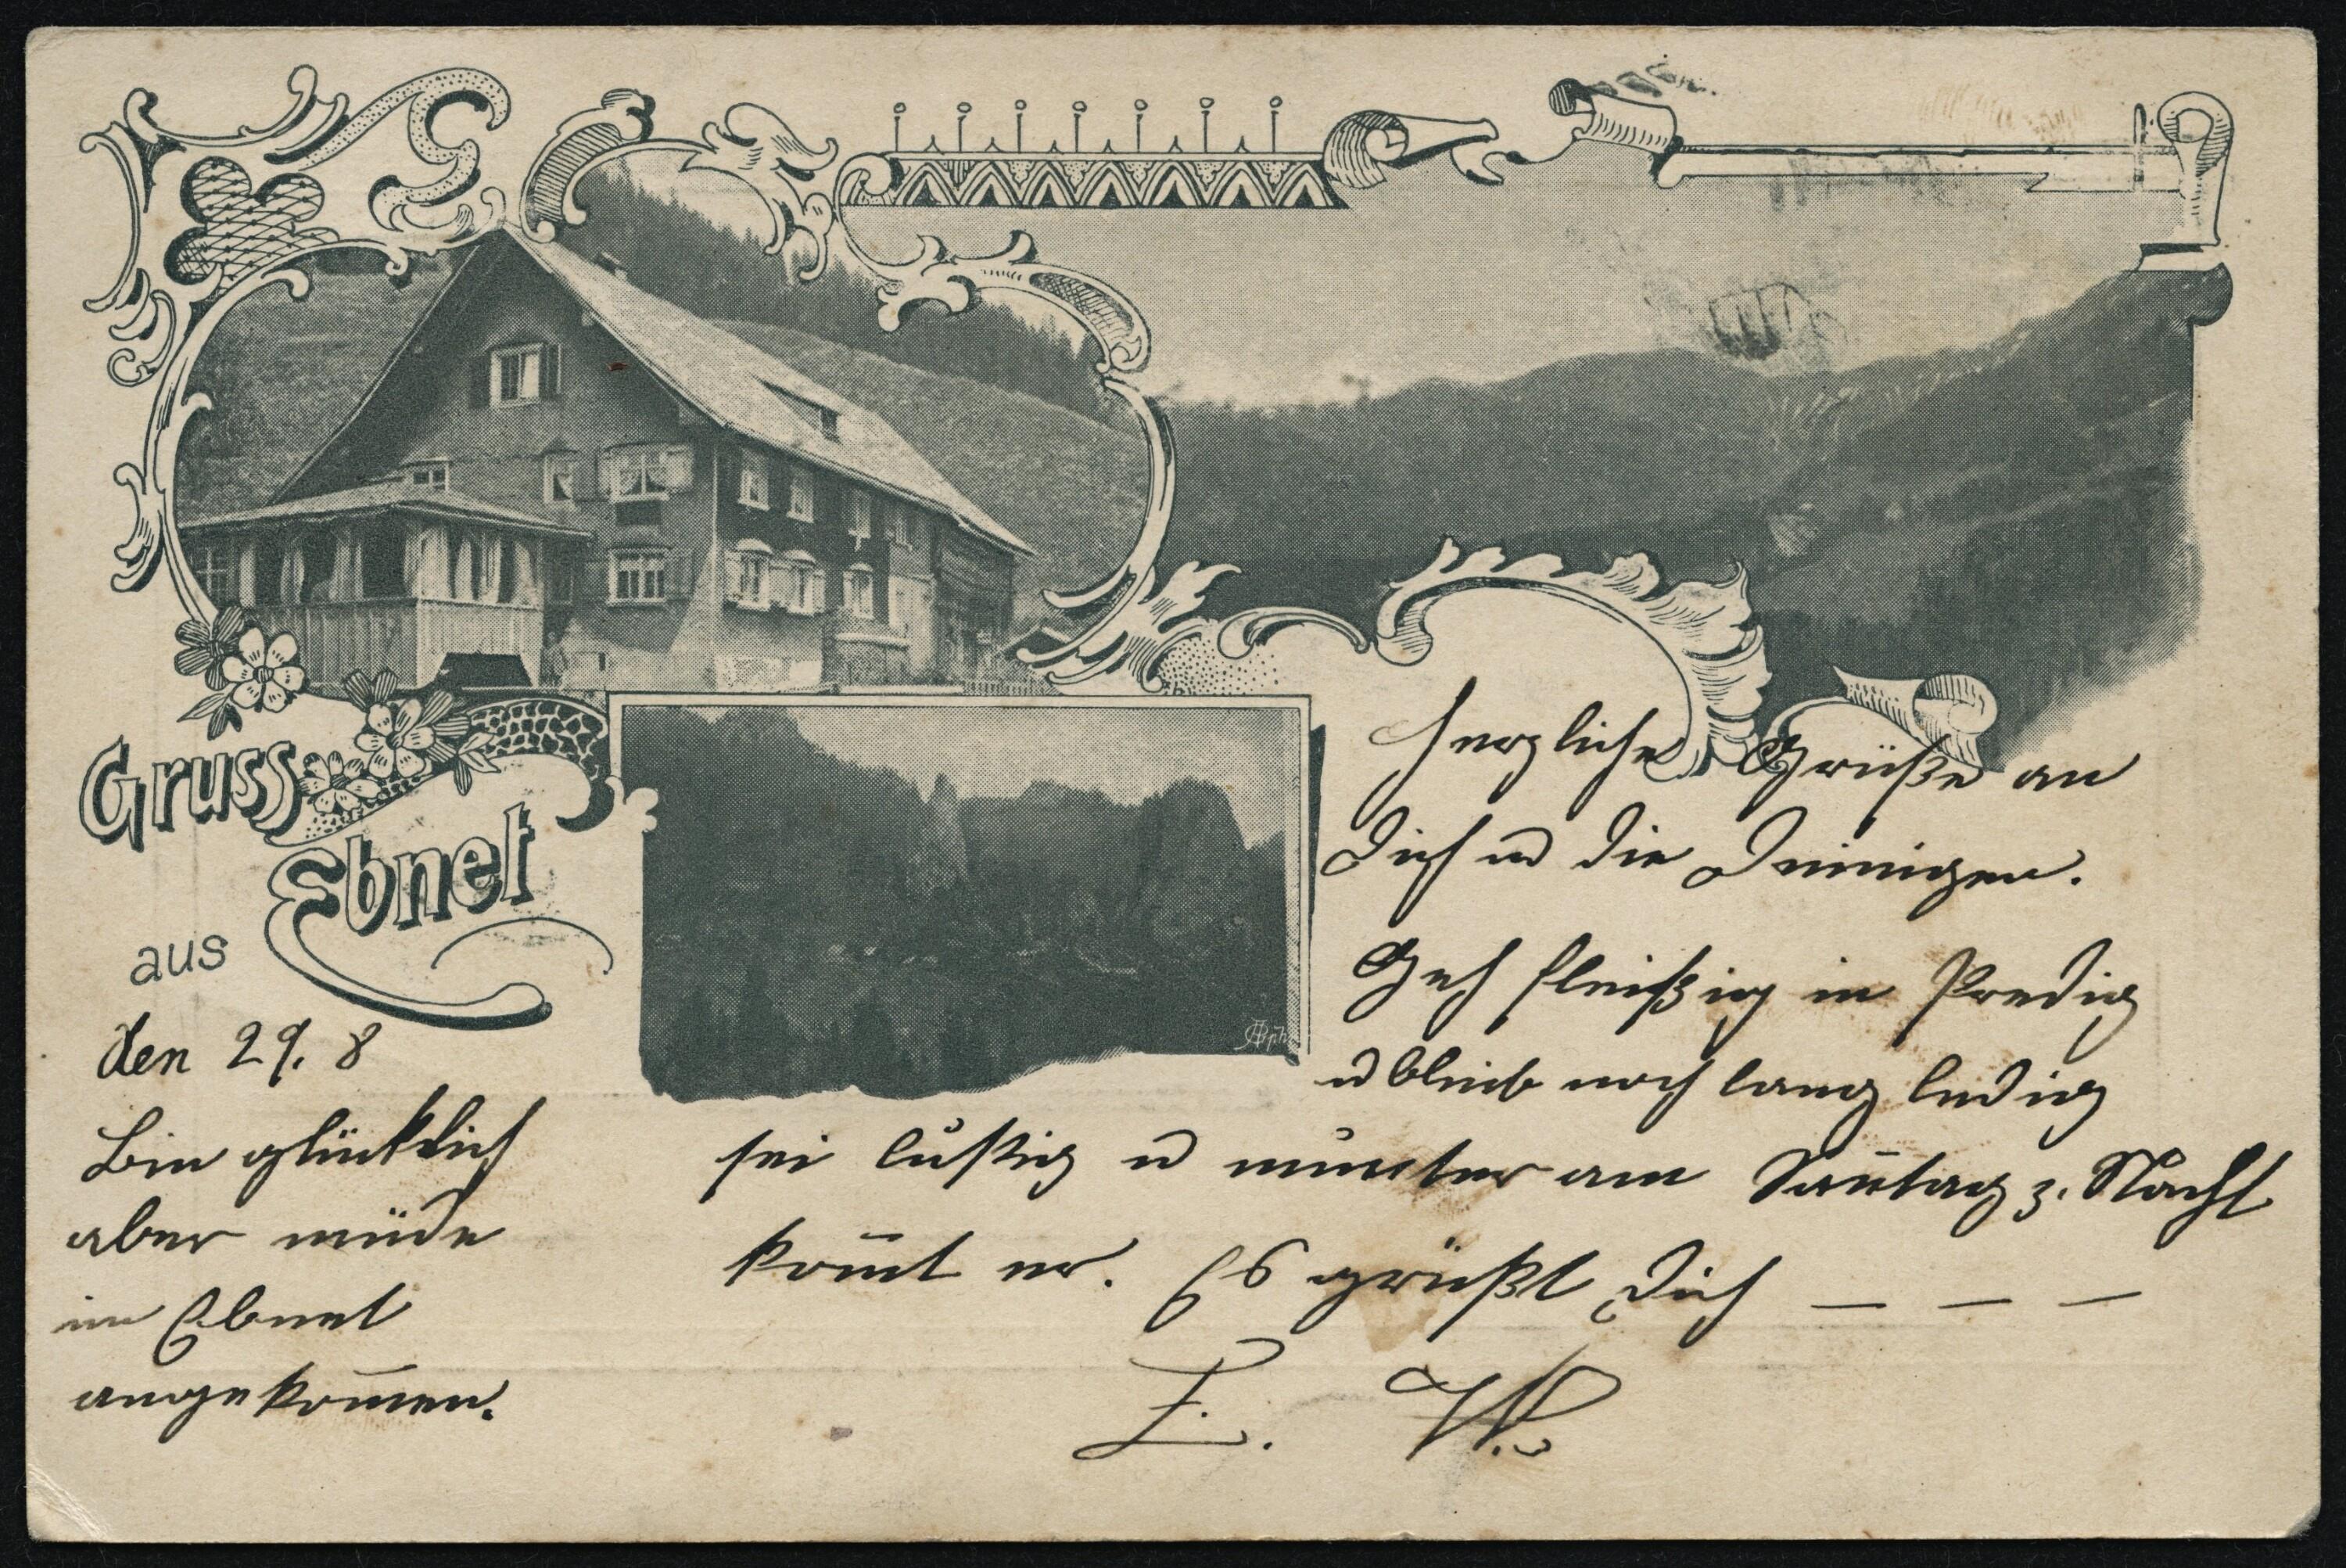 Gruss
aus
Ebnet
den 29. 8
Bin glücklich
aber müde
in Ebnet
angekom̄en.
Herzliche Grüße an
Dich u die Deinigen.
Geh fleißig in Predig
u bleib noch lang ledig
sei lustig u munter am Son̄tag z. Nacht
kom̄t er. Es grüßt Dich — — —
E. W.